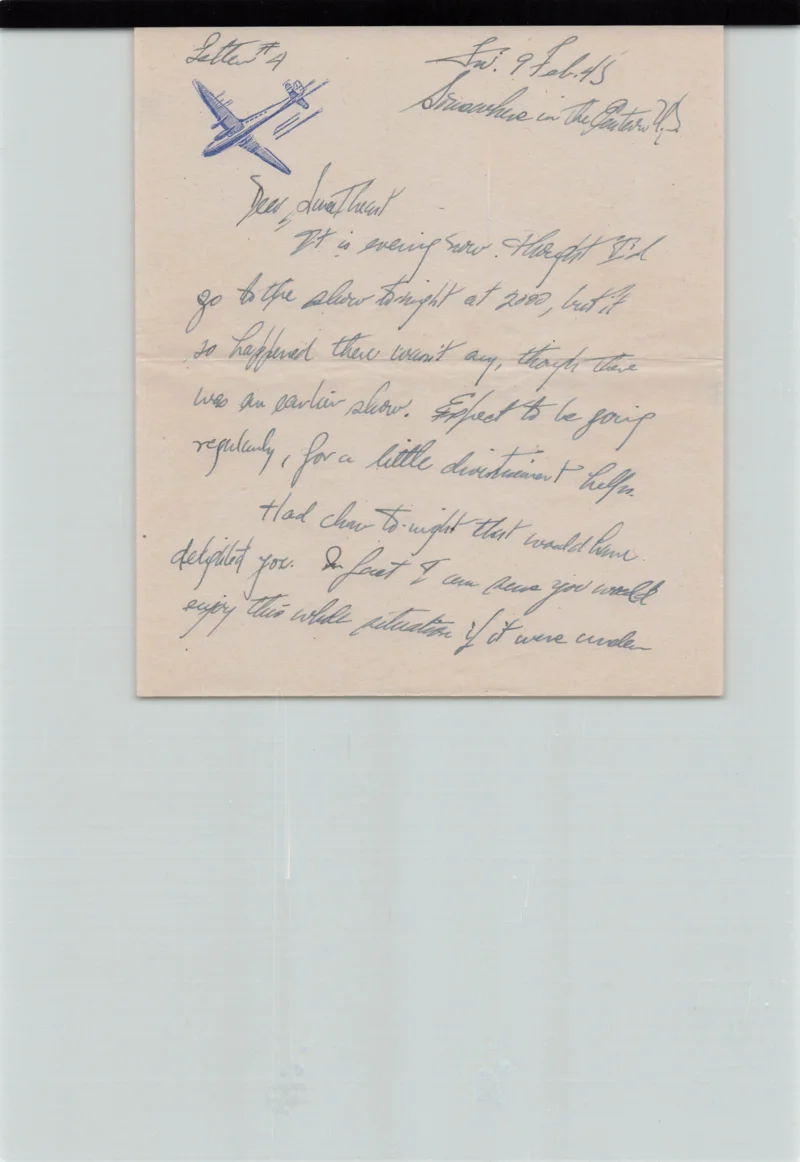 Letter #4
Fri. 9 Feb. 45
Somewhere in the Eastern U.S.
Dear Sweetheart
It is evening now. Thought I'd
go to the show tonight at 2000, but it
so happened there wasn't any, though there
was an earlier show. Expect to be going
regularly, for a little divertisment helps.
Had chow to-night that would have
delighted you. In fact I am sure you would
enjoy this whole situation if it were under